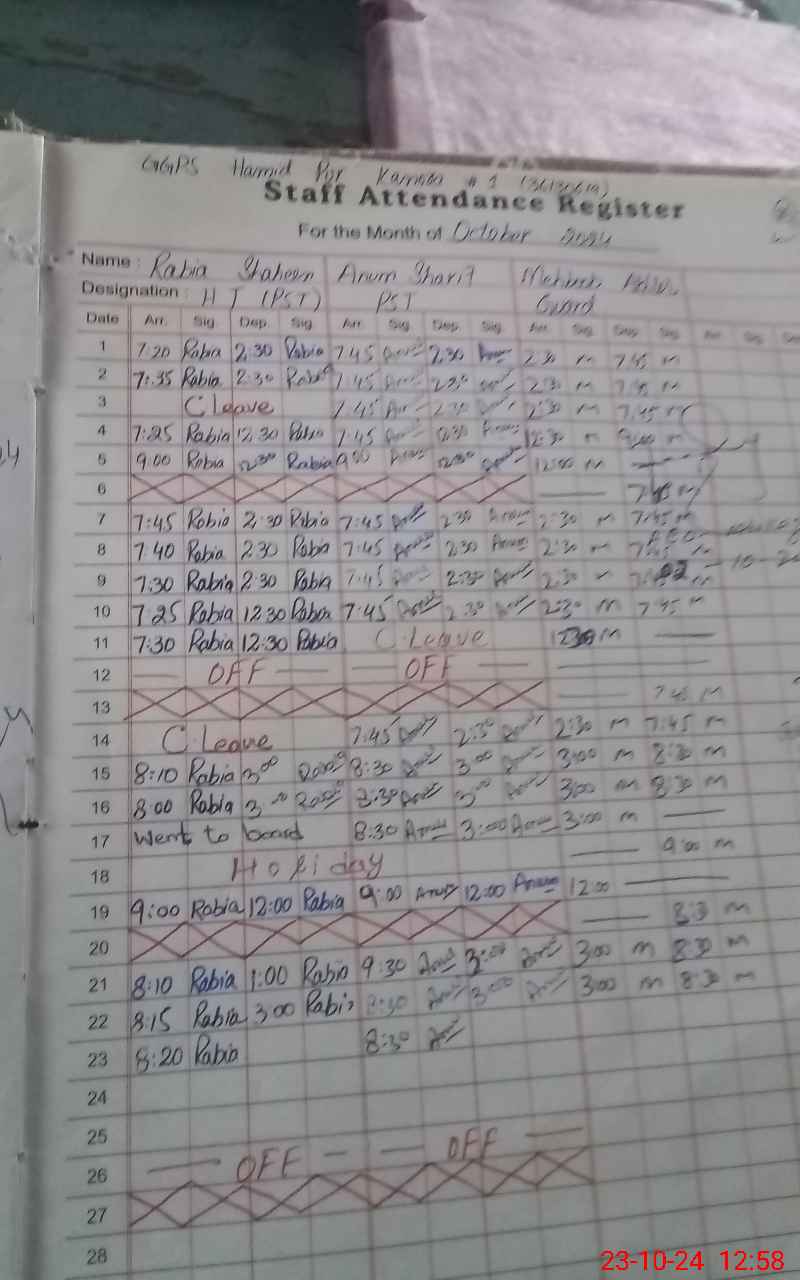 GGPS Hamid Pur
Staff Attendance Register
For the Month of October 2024
Name : Rabia Shaheen Anum Sharif
Designation : H T (PST) PST Guard
Date Arr. Sig. Dep. Sig. Arr. Sig. Dep. Sig. Arr. Sig. Dep. Sig. Arr. Sig. Dep.
1 7:20 Rabia 2:30 Rabia 7:45 Anum 2:30 Anum 2:30 m 7:45 m
2 7:35 Rabia 2:30 Rabia 7:45 2:30 2:30 m 7:45 m
3 C leave 7:45 2:30 2:30 m 7:45 m
4 7:25 Rabia 12:30 Rabia 7:45 12:30 Anum 12:30 m 9:00 m
5 9:00 Rabia 12:30 Rabia 9:00 Anum 12:30 Anum 12:00 m
6 7:45 m
7 7:45 Rabia 2:30 Rabia 7:45 Anum 2:30 Anum 2:30 m 7:45 m
8 7:40 Rabia 2:30 Rabia 7:45 Anum 2:30 Anum 2:30 m 7:45 m
9 7:30 Rabia 2:30 Rabia 7:45 Anum 2:30 Anum 2:30 m
10 7:25 Rabia 12:30 Rabia 7:45 Anum 2:30 Anum 2:30 m 7:45 m
11 7:30 Rabia 12:30 Rabia C.Leave m
12 OFF OFF
13 7:45 m
14 C.Leave 7:45 Anum 2:30 Anum 2:30 m 7:45 m
15 8:10 Rabia 3:00 Rabia 8:30 Anum 3:00 Anum 3:00 m 8:30 m
16 8:00 Rabia 3:00 Rabia 8:30 Anum 3:00 Anum 3:00 m 8:30 m
17 Went to board 8:30 Anum 3:00 Anum 3:00 m
18 Holiday 9:00 m
19 9:00 Rabia 12:00 Rabia 9:00 Anum 12:00 Anum 12:00
20 8:30 m
21 8:10 Rabia 1:00 Rabia 9:30 Anum 3:00 Anum 3:00 m 8:30 m
22 8:15 Rabia 3:00 Rabia 8:30 Anum 3:00 Anum 3:00 m 8:30 m
23 8:20 Rabia 8:30 Anum
24
25
26 OFF OFF
27
28
23-10-24 12:58